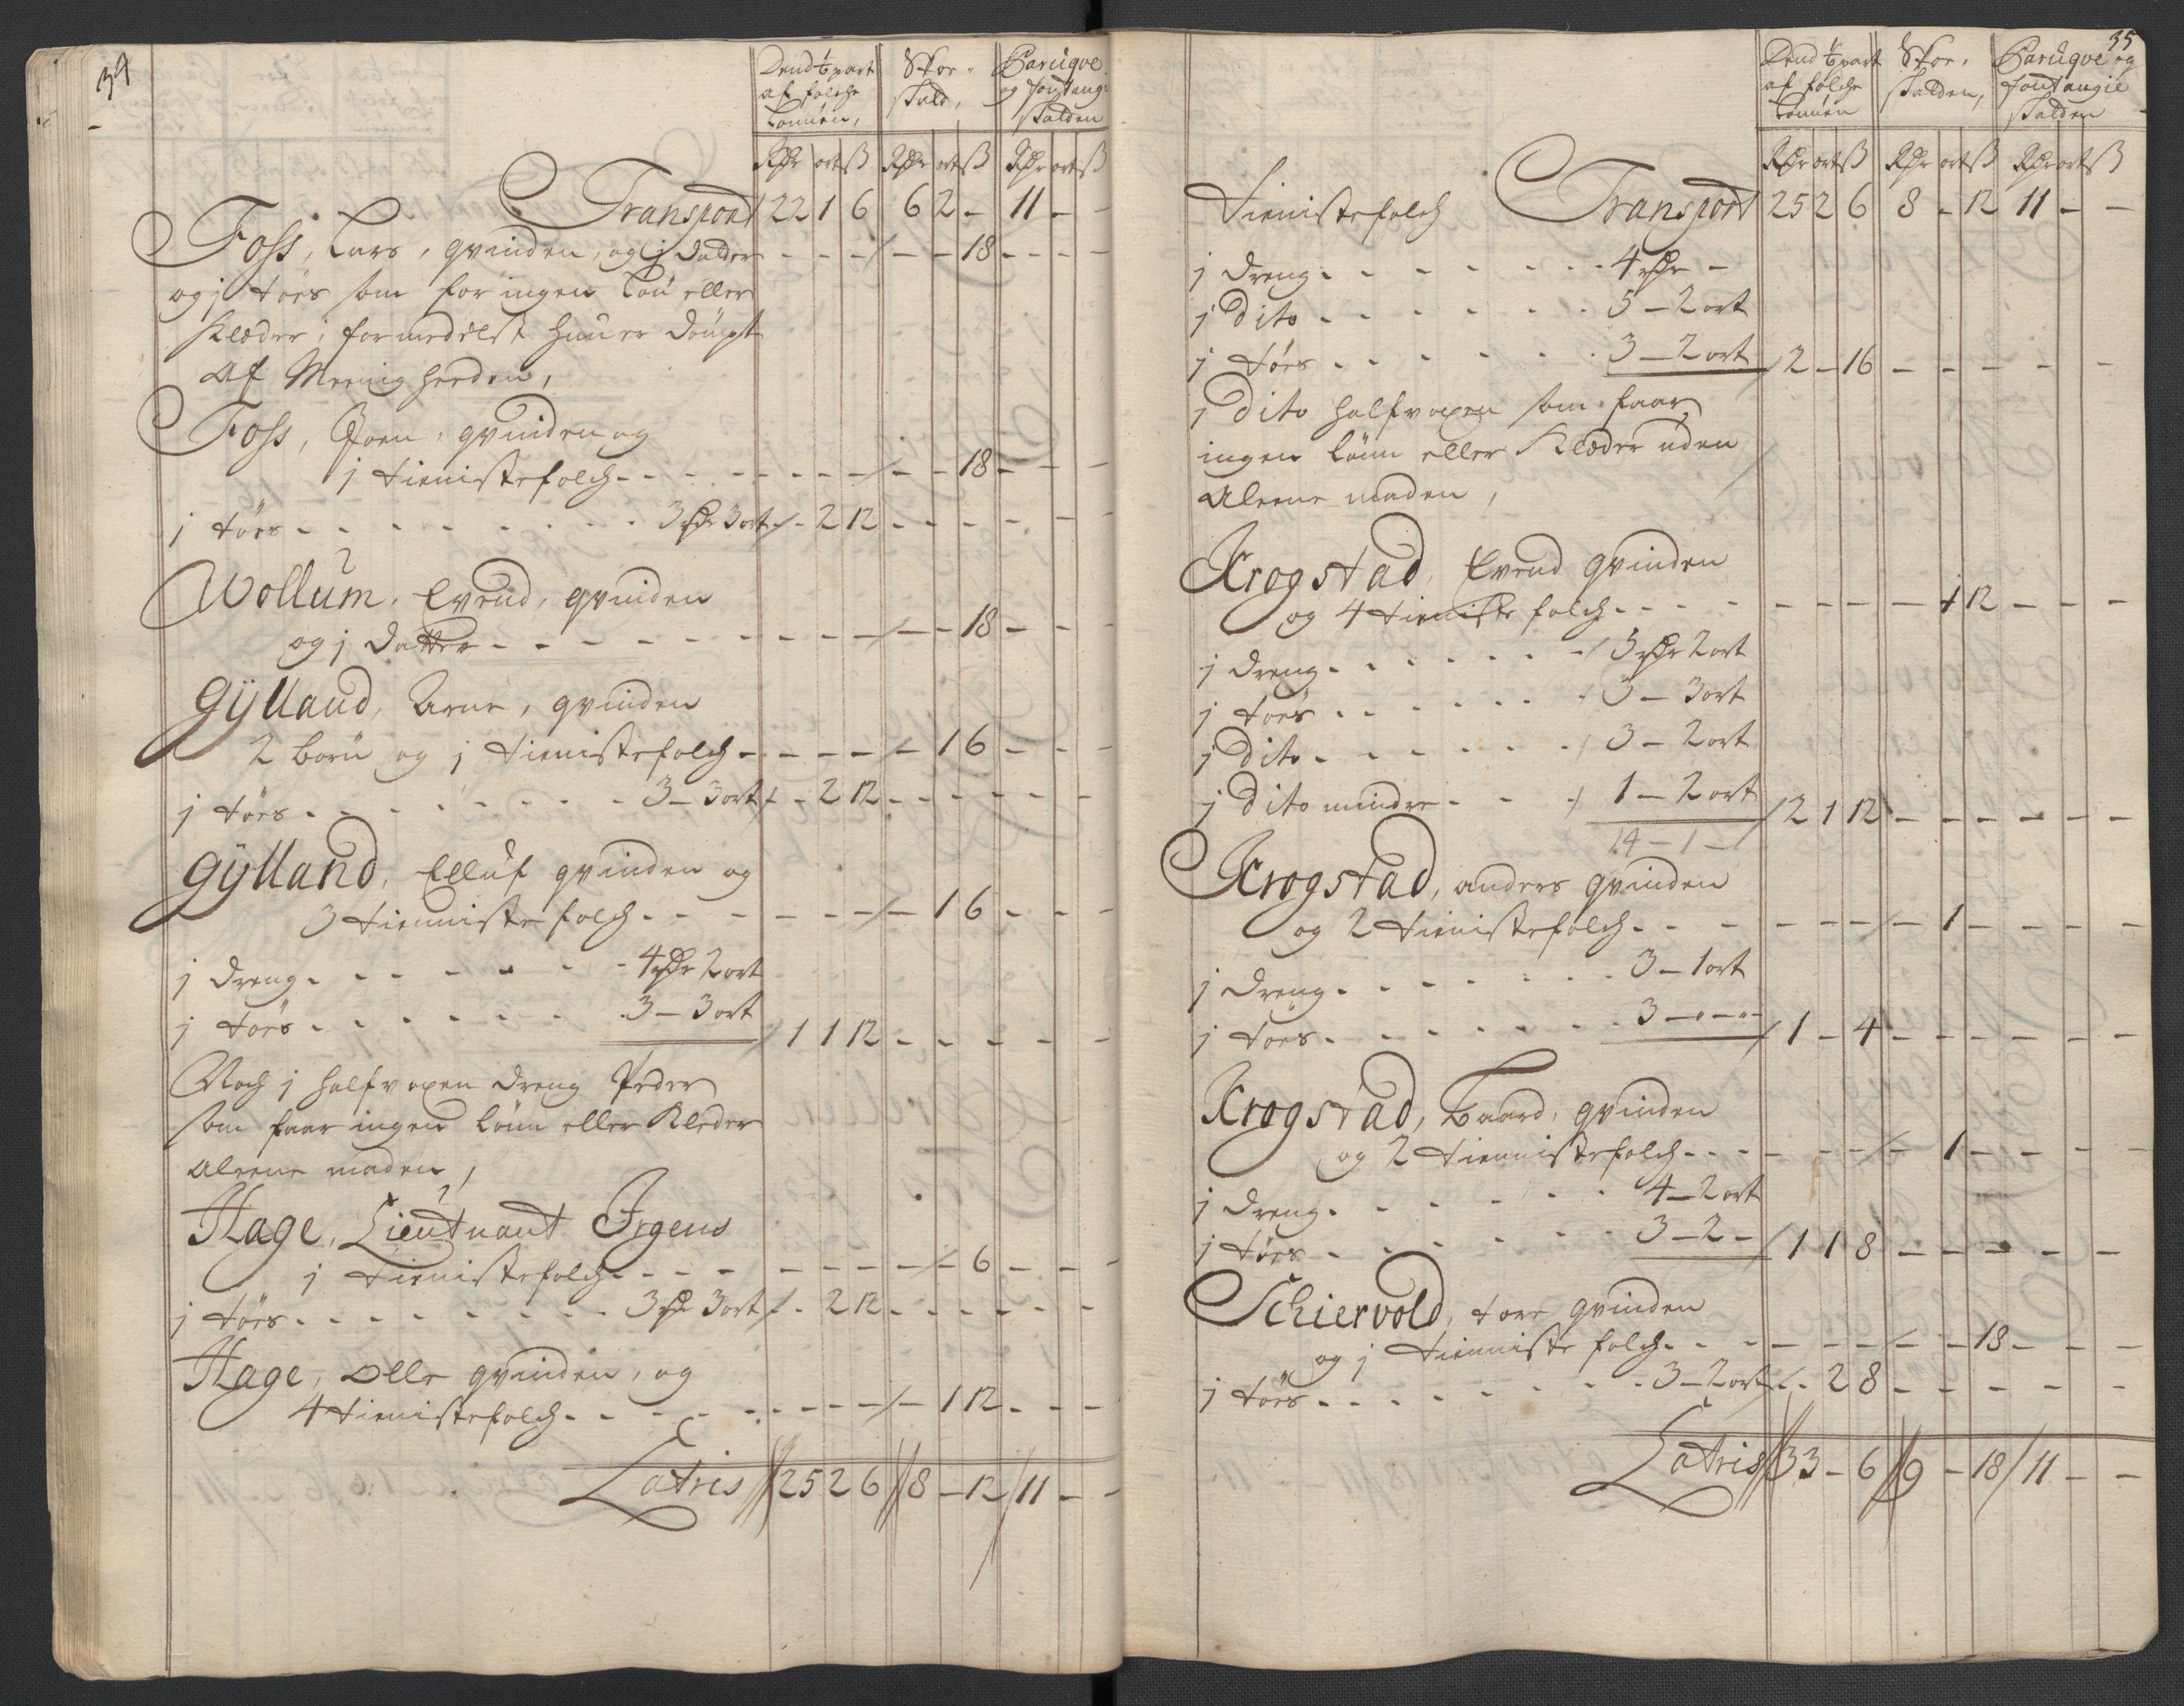 34
Dend 1/6 part af folche Lønnen, | Skoe skatt, | Paruqve og fontangie skatten
Rdr ort ß | Rdr ort ß | Rdr ort ß
Transport 22 1 6 | 6 2 - | 11 - -
Foss, Lars, qvinden, og j datter - - - / - - 18 - - -
og j tøes som faar ingen Løn eller
Klæder, formedelst hun er
Af Meenigheeden,
Foss, Joen, qvinden og
j tienistefolch - - - / - - 18 - - -
j tøes - - - 3 rdr 3 ort / - 2 12 - - -
Wollum, Evend, qvinden
og j datter - - - / - - 18 - - -
Gylland, Arne, qvinden
2 børn og j tienistefolch - - - / - 1 6 - - -
j tøes - - - 3 - 3 ort / - 2 12 - - -
Gylland, Elluf qvinden og
3 tienniste folch - - - / - 1 6 - - -
j dreng - - - 4 rdr 2 ort
j tøes - - - 3 - 3 ort / 1 1 12 - - -
Noch j halfvoxen dreng Peder
som faar ingen Lønn eller Kleder
aleene maden,
Hage, Lieutnant Irgens
j tienistefolch - - - / - 6 - - -
j tøes - - - 3 rdr 3 ort / - 2 12 - - -
Hage, Olle qvinden, og
4 tienistefolch - - - / - 1 12 - - -
Latris // 25 2 6 // 8 - 12 / 11 - -
35
Dend 1/6 part af folche Lønnen | Skoe skatten, | Paruqve og fontangie skatten
Rdr ort ß | Rdr ort ß | Rdr ort ß
Tienistefolch Transport 25 2 6 | 8 - 12 | 11 - -
j dreng - - - 4 rdr -
j Dito - - - 5 - 2 ort
j tøes - - - 3 - 2 ort / 2 - 16 - - -
j Dito halfvoxen som faar
ingen Lønn eller Klæder uden
Aleene maden,
Krogstad, Evend qvinden
og 4 tieniste folch - - - 1 12 - - -
j dreng - - - / 3 rdr 2 ort
j tøes - - - / 3 - 3 ort
j Dito - - - / 3 - 2 ort
j Dito mindre - - / 1 - 2 ort / 2 1 12 - - -
14 - 1 -
Krogstad, anders qvinden
og 2 tienistefolch - - - / - 1 - - - -
j dreng - - - 3 - 1 ort
j tøes - - - 3 - - - / 1 - 4 - - -
Krogstad, Baard, qvinden
og 2 tiennistefolch - - - / - 1 - - - -
j dreng - - - 4 - 2 ort
j tøes - - - 3 - 2 - / 1 1 8 - - -
Schiervold, tore qvinden
og j tienniste folch - - - / - - 18 - - -
j tøes - - - 3 - 2 ort / - 2 8 - - -
Latris // 33 - 6 // 9 - 18 / 11 - -